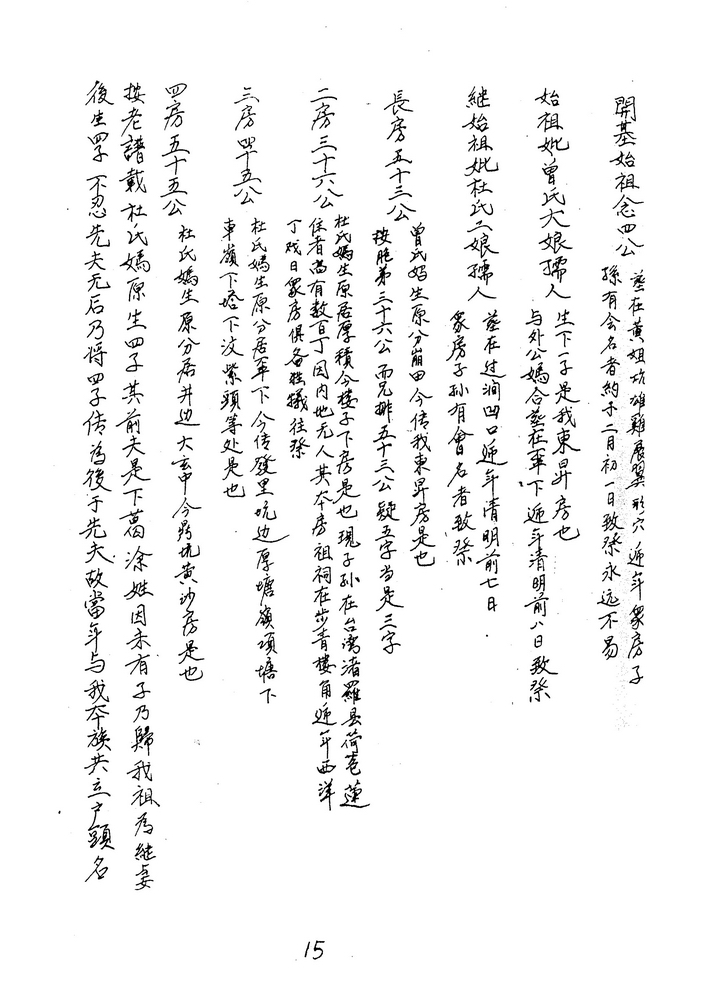 開基始祖念四公
葬在黄姐坑雄雞展翼形穴 递年眾房子
孫有会名者約于二月初一日致祭永远不易
始祖妣曾氏大娘孺人
生下一子是我東昇房也
与外公媽合葬在軍下递年清明前八日致祭
继始祖妣杜氏二娘孺人
葬在过洞凹口递年清明前七日
眾房子孙有會名者致祭
長房五十三公
曾氏媽生原分崩田今传我東昇房是也
按胞弟三十六公而兄排五十三公疑五字当是三字
二房三十六公
杜氏媽生原居厚積今楼子下房是也現子孙在台湾渚羅县荷苞蓮
住者尚有数百丁因内地无人其本房祖祠在步青楼角递年西洋
丁戏日眾房俱备牲犠往祭
三房四十五公
杜氏媽生原分居軍下今传發里坑边厚塘嶺頭塘下
車嶺下塔下汶紫頭等处是也
四房五十五公
杜氏媽生原分居井边大玄申今昇坑黄沙房是也
按老譜載杜氏媽原生四子其前夫是下葛涂姓因未有子乃歸我祖為继妾
後生四子不忍先夫无后乃将四子传為後于先夫故當年与我本族共立户顕名
15